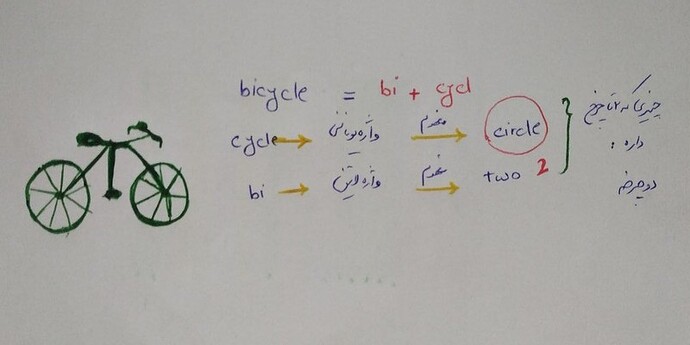 bicycle = bi + cycl
cycle → واژه یونانی مفهوم → circle
bi → واژه لاتین مفهوم → two 2
چیزی که ۲ تا چرخ
داره :
دوچرخه